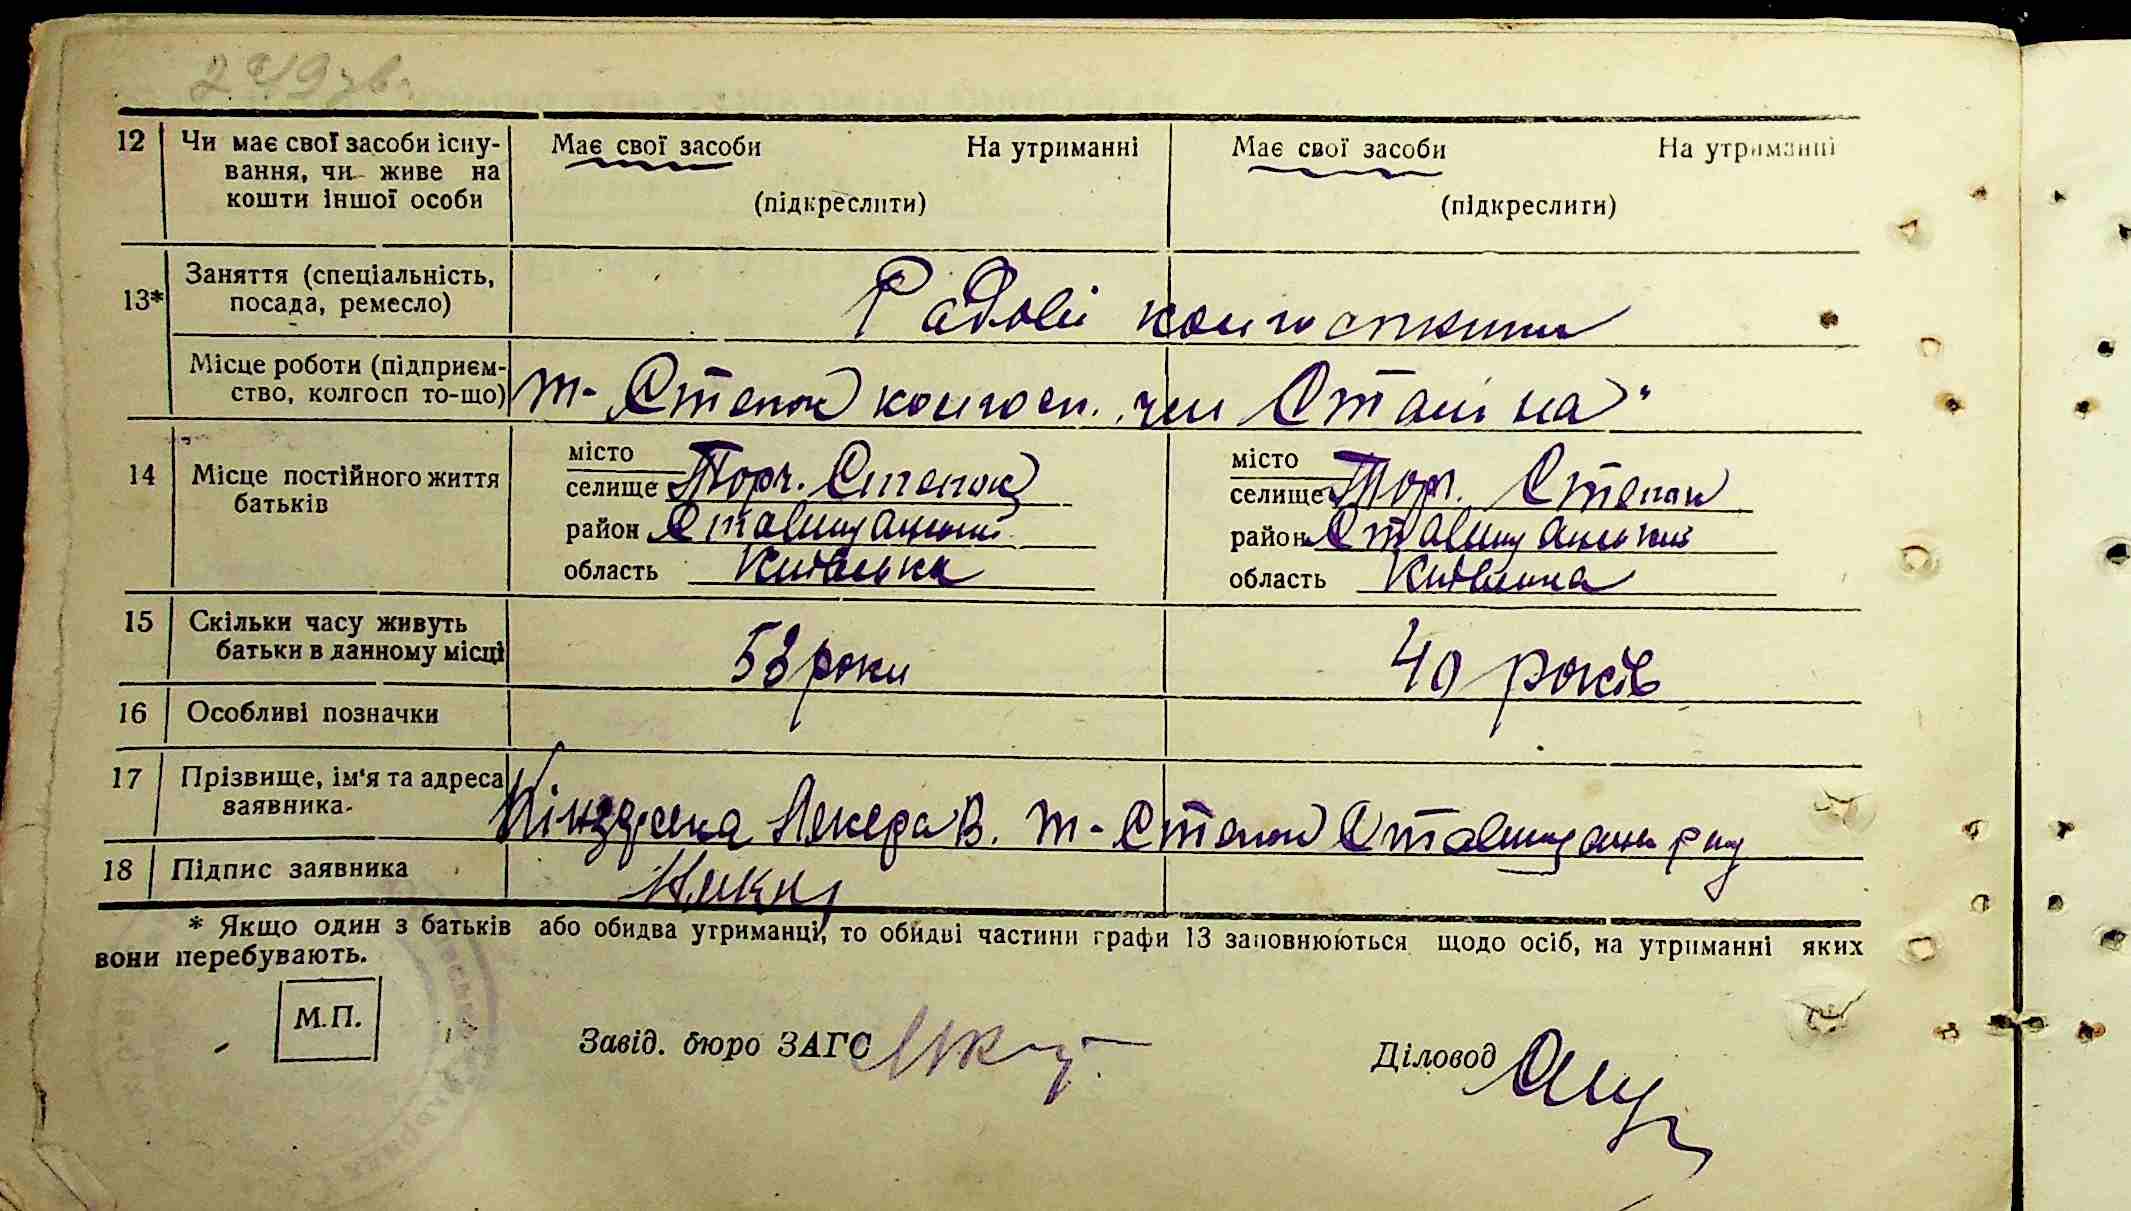 12 Чи має свої засоби існу- Має свої засоби На утриманні Має свої засоби На утриманні
вання, чи живе на
кошти іншої особи (підкреслити) (підкреслити)
Заняття (спеціальність,
13* посада, ремесло) Радові
Місце роботи (підприєм-
ство, колгосп то-що) Т- Степок колгосп. „ім Сталіна"
місто місто
14 Місце постійного життя селище Торч. Степок селище Торч. Степок
батьків район Ставищанський район Ставищанський
область Київська область Київська
15 Скільки часу живуть
батьки в данному місці 53 роки 40 років
16 Особливі позначки
17 Прізвище, ім'я та адреса
заявника. В. Т- Степок Ставищан р ну
18 Підпис заявника
* Якщо один з батьків або обидва утриманці, то обидві частини графи 13 заповнюються щодо осіб, на утриманні яких
вони перебувають.
М.П.
Завід. бюро ЗАГС Діловод